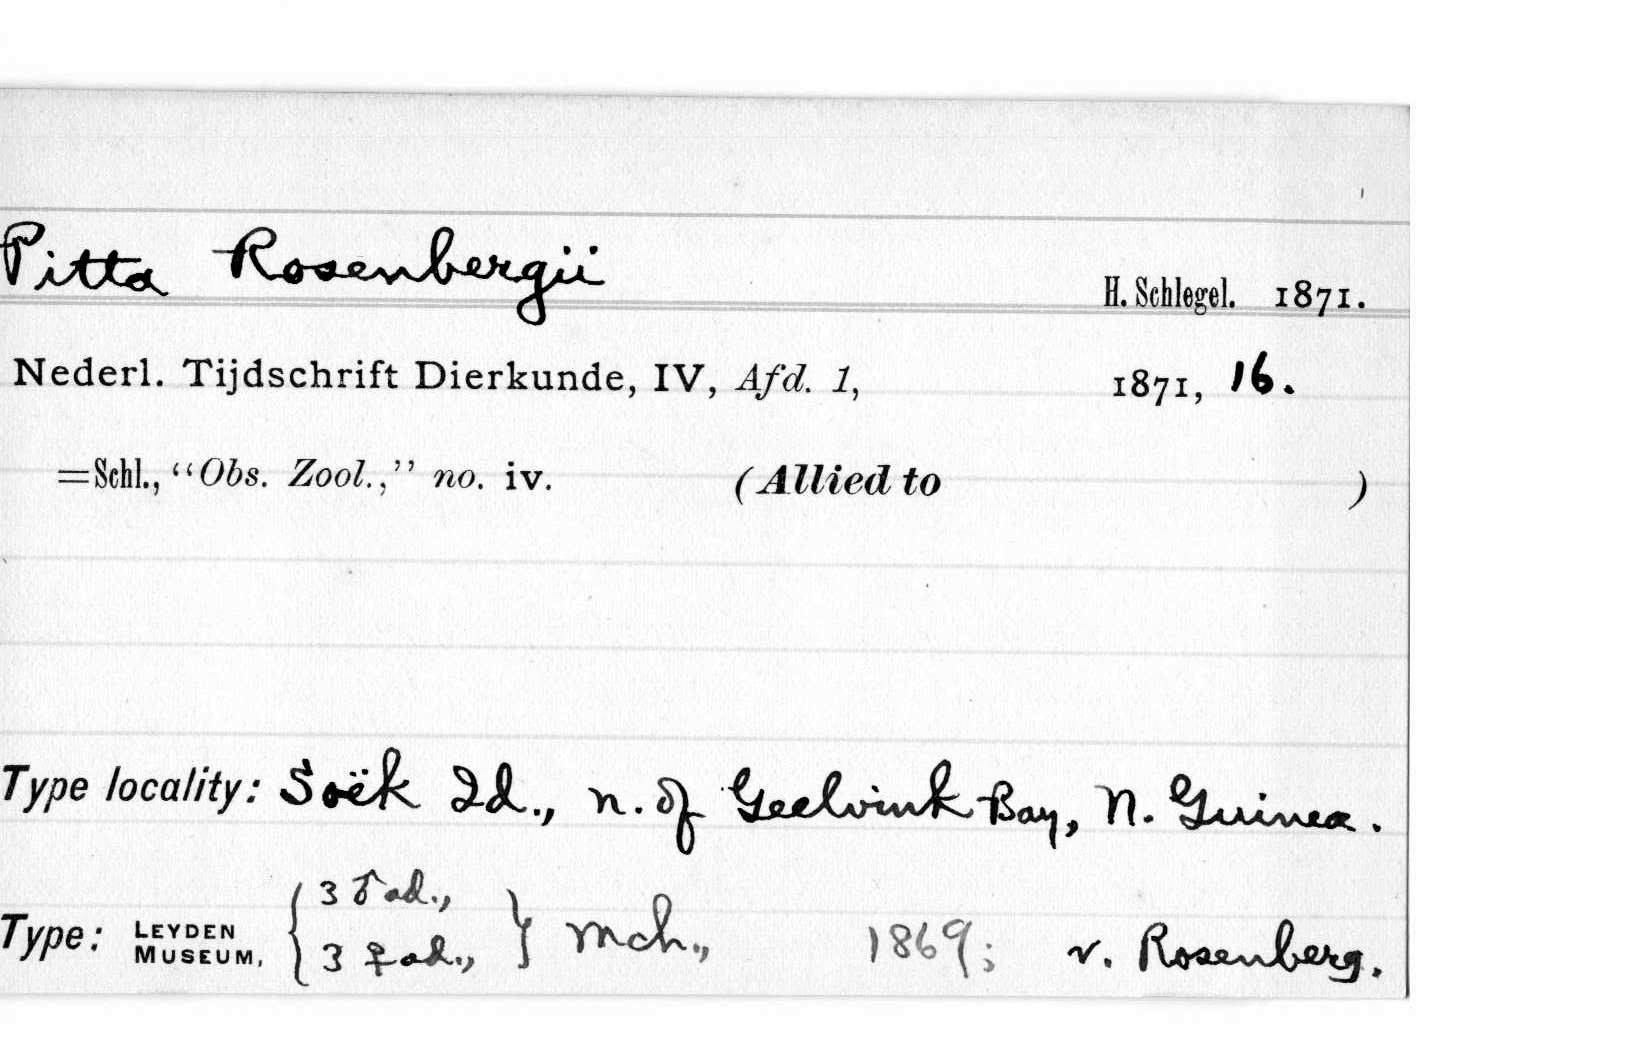 Pitta Rosenbergii
H. Schlegel. 1871.
Nederl. Tijdschrift Dierkunde, IV, Afd. 1, 1871, 16.
=Schl., “Obs. Zool.,” no. iv. (Allied to )
Type locality: Soëk Id., n. of Geelvink Bay, N. Guinea.
Type: LEYDEN MUSEUM, { 3 ♂ ad., 3 ♀ ad., } Mch., 1869; v. Rosenberg.